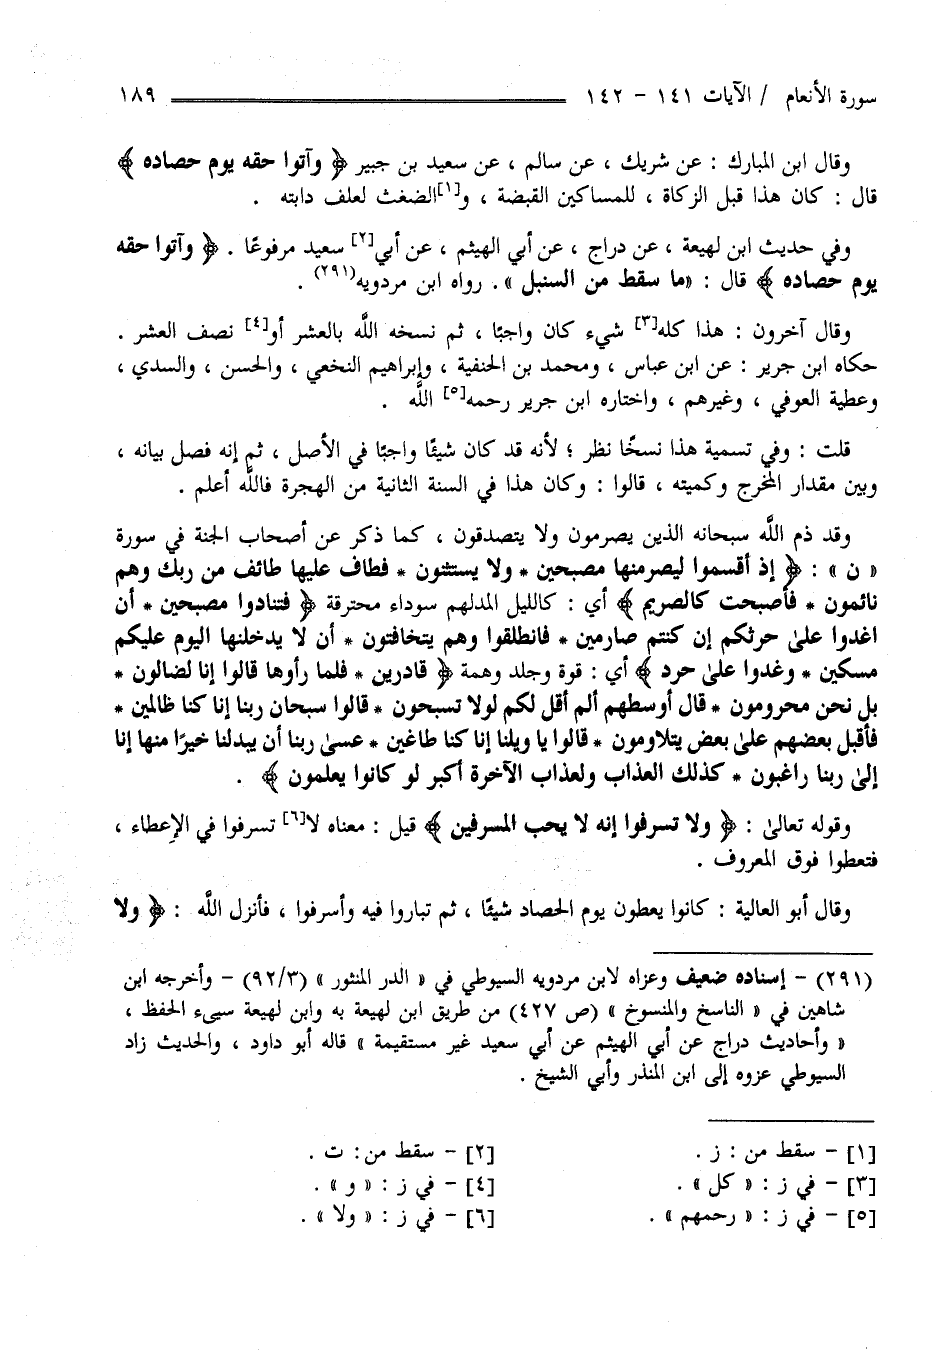 سورة الأنعام / الآيات ١٤١ - ١٤٢ ١٨٩
وقال ابن المبارك : عن شريك ، عن سالم ، عن سعيد بن جبير ﴿ وآتوا حقه يوم حصاده ﴾
قال : كان هذا قبل الزكاة ، للمساكين القبضة ، و[١]الضغث لعلف دابته .
وفي حديث ابن لهيعة ، عن دراج ، عن أبي الهيثم ، عن أبي[٢] سعيد مرفوعًا . ﴿ وآتوا حقه
يوم حصاده ﴾ قال : «ما سقط من السنبل» . رواه ابن مردويه(٢٩١) .
وقال آخرون : هذا كله[٣] شيء كان واجبًا ، ثم نسخه اللَّه بالعشر أو[٤] نصف العشر .
حكاه ابن جرير : عن ابن عباس ، ومحمد بن الحنفية ، وإبراهيم النخعي ، والحسن ، والسدي ،
وعطية العوفي ، وغيرهم ، واختاره ابن جرير رحمه[٥] اللَّه .
قلت : وفي تسمية هذا نسخًا نظر ؛ لأنه قد كان شيئًا واجبًا في الأصل ، ثم إنه فصل بيانه ،
وبين مقدار المخرج وكميته ، قالوا : وكان هذا في السنة الثانية من الهجرة فاللَّه أعلم .
وقد ذم اللَّه سبحانه الذين يصرمون ولا يتصدقون ، كما ذكر عن أصحاب الجنة في سورة
« ن » : ﴿ إذ أقسموا ليصرمنها مصبحين * ولا يستثنون * فطاف عليها طائف من ربك وهم
نائمون * فأصبحت كالصريم ﴾ أي : كالليل المدلهم سوداء محترقة ﴿ فتنادوا مصبحين * أن
اغدوا على حرثكم إن كنتم صارمين * فانطلقوا وهم يتخافتون * أن لا يدخلنها اليوم عليكم
مسكين * وغدوا على حرد ﴾ أي : قوة وجلد وهمة ﴿ قادرين * فلما رأوها قالوا إنا لضالون *
بل نحن محرومون * قال أوسطهم ألم أقل لكم لولا تسبحون * قالوا سبحان ربنا إنا كنا ظالمين *
فأقبل بعضهم على بعض يتلاومون * قالوا يا ويلنا إنا كنا طاغين * عسى ربنا أن يبدلنا خيرًا منها إنا
إلى ربنا راغبون * كذلك العذاب ولعذاب الآخرة أكبر لو كانوا يعلمون ﴾ .
وقوله تعالى : ﴿ ولا تسرفوا إنه لا يحب المسرفين ﴾ قيل : معناه لا[٦] تسرفوا في الإعطاء ،
فتعطوا فوق المعروف .
وقال أبو العالية : كانوا يعطون يوم الحصاد شيئًا ، ثم تباروا فيه وأسرفوا ، فأنزل اللَّه : ﴿ ولا
(٢٩١) - إسناده ضعيف وعزاه لابن مردويه السيوطي في « الدر المنثور » (٩٢/٣) - وأخرجه ابن
شاهين في « الناسخ والمنسوخ » (ص ٤٢٧) من طريق ابن لهيعة به وابن لهيعة سيىء الحفظ ،
« وأحاديث دراج عن أبي الهيثم عن أبي سعيد غير مستقيمة » قاله أبو داود ، والحديث زاد
السيوطي عزوه إلى ابن المنذر وأبي الشيخ .
[١] - سقط من : ز . [٢] - سقط من: ت .
[٣] - في ز : « كل » . [٤] - في ز : « و » .
[٥] - في ز : « رحمهم » . [٦] - في ز : « ولا » .